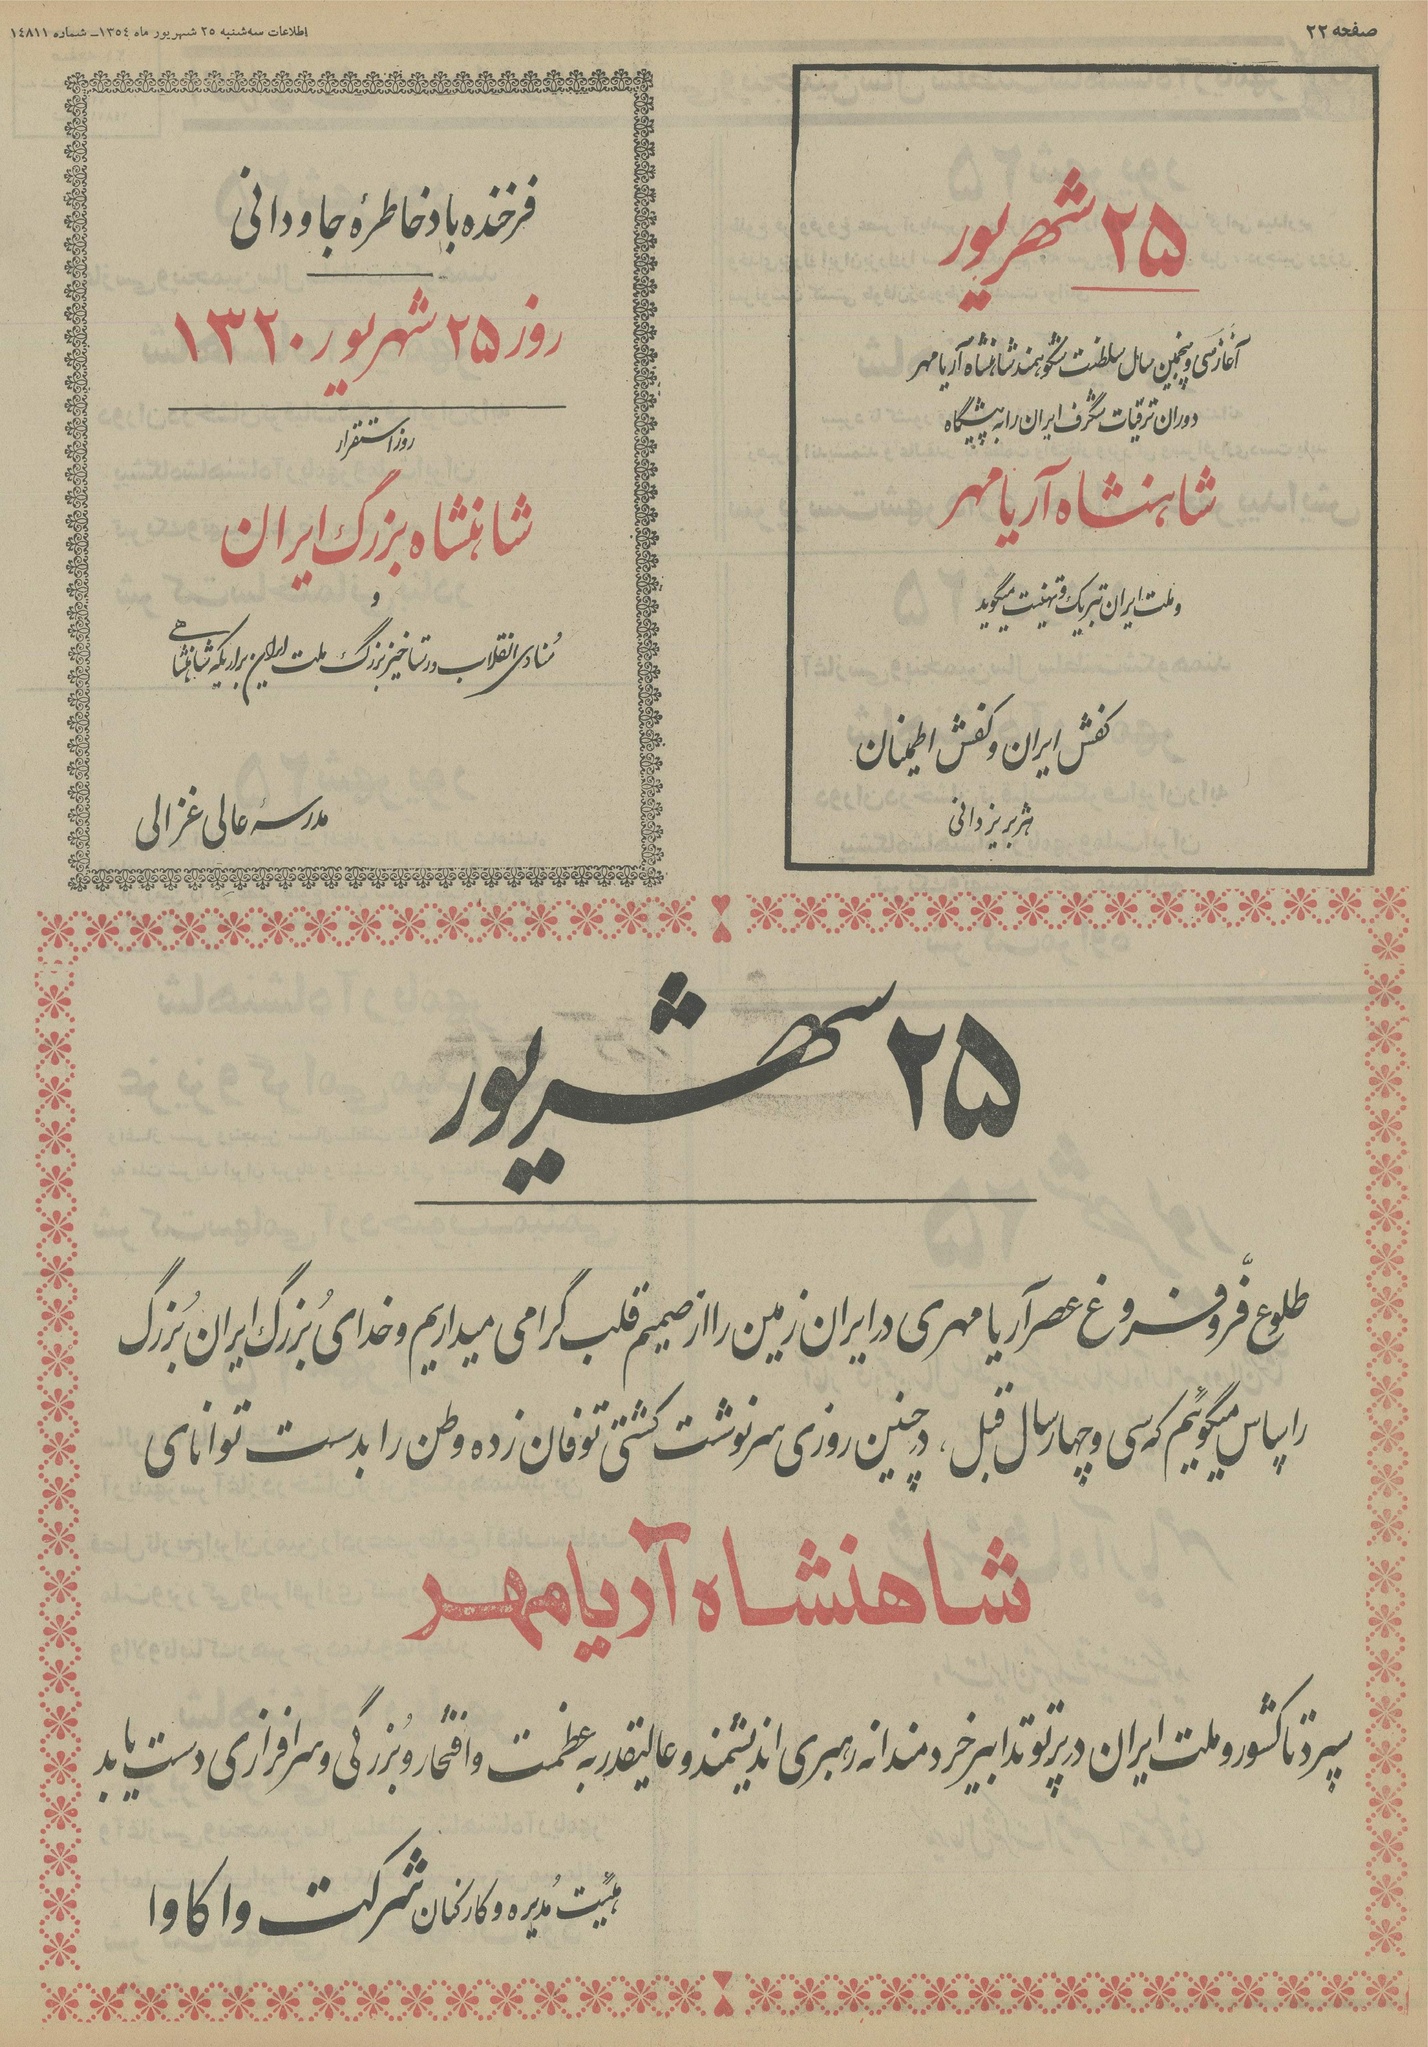 صفحه ۲۲
اطلاعات سه‌شنبه ۲۵ شهریور ماه ۱۳۵۴ـ شماره ۱۴۸۱۱
۲۵ شهریور
آغاز سی و پنجمین سال سلطنت شکوهمند شاهنشاه آریامهر
دوران ترقیات شگرف ایران را به پیشگاه
شاهنشاه آریامهر
و ملت ایران تبریک و تهنیت میگوید
کفش ایران و کفش اطمینان
هژبر یزدانی
فرخنده باد خاطرهٔ جاودانی
روز ۲۵ شهریور ۱۳۲۰
روز استقرار
شاهنشاه بزرگ ایران
و
مُنادی انقلاب و رستاخیز بزرگ ملت ایران بر اریکه شاهنشاهی
مدرسهٔ عالی غزالی
۲۵ شهریور
طلوع فرّ و فروغ عصر آریامهری در ایران زمین را از صمیم قلب گرامی میداریم و خدای بُزرگ ایران بُزرگ
را سپاس میگوئیم که سی و چهار سال قبل، در چنین روزی سرنوشت کشتی توفان زده وطن را بدست توانای
شاهنشاه آریامهر
سپرد تا کشور و ملت ایران در پرتو تدابیر خردمندانه رهبری اندیشمند و عالیقدر به عظمت و افتخار و بُزرگی و سرافرازی دست یابد
هیئت مُدیره و کارکنان شرکت واکاوا